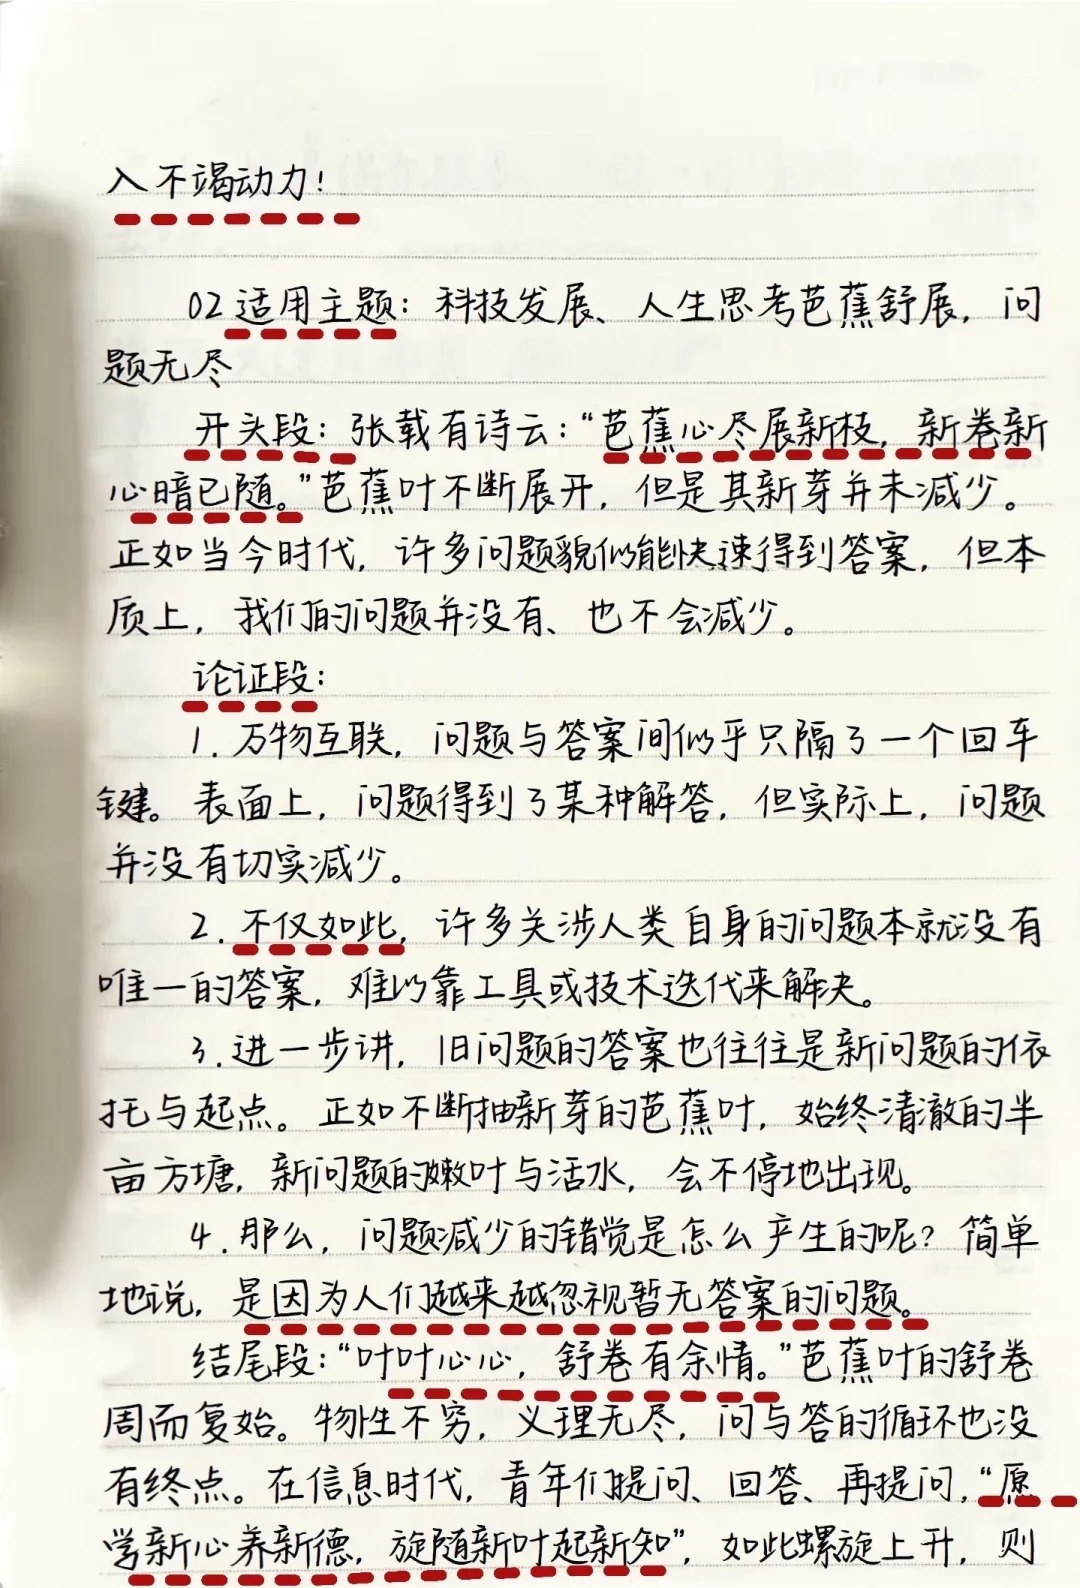 入不竭动力！
02适用主题：科技发展、人生思考芭蕉舒展，问
题无尽
开头段：张载有诗云：“芭蕉心尽展新枝，新卷新
心暗已随。”芭蕉叶不断展开，但是其新芽并未减少。
正如当今时代，许多问题貌似能快速得到答案，但本
质上，我们的问题并没有、也不会减少。
论证段：
1.万物互联，问题与答案间似乎只隔了一个回车
键。表面上，问题得到了某种解答，但实际上，问题
并没有切实减少。
2.不仅如此，许多关涉人类自身的问题本就没有
唯一的答案，难以靠工具或技术迭代来解决。
3.进一步讲，旧问题的答案也往往是新问题的依
托与起点。正如不断抽新芽的芭蕉叶，始终清澈的半
亩方塘，新问题的嫩叶与活水，会不停地出现。
4.那么，问题减少的错觉是怎么产生的呢？简单
地说，是因为人们越来越忽视暂无答案的问题。
结尾段：“叶叶心心，舒卷有余情。”芭蕉叶的舒卷
周而复始。物性不穷，义理无尽，问与答的循环也没
有终点。在信息时代，青年们提问、回答、再提问，“愿
学新心养新德，旋随新叶起新知”，如此螺旋上升，则